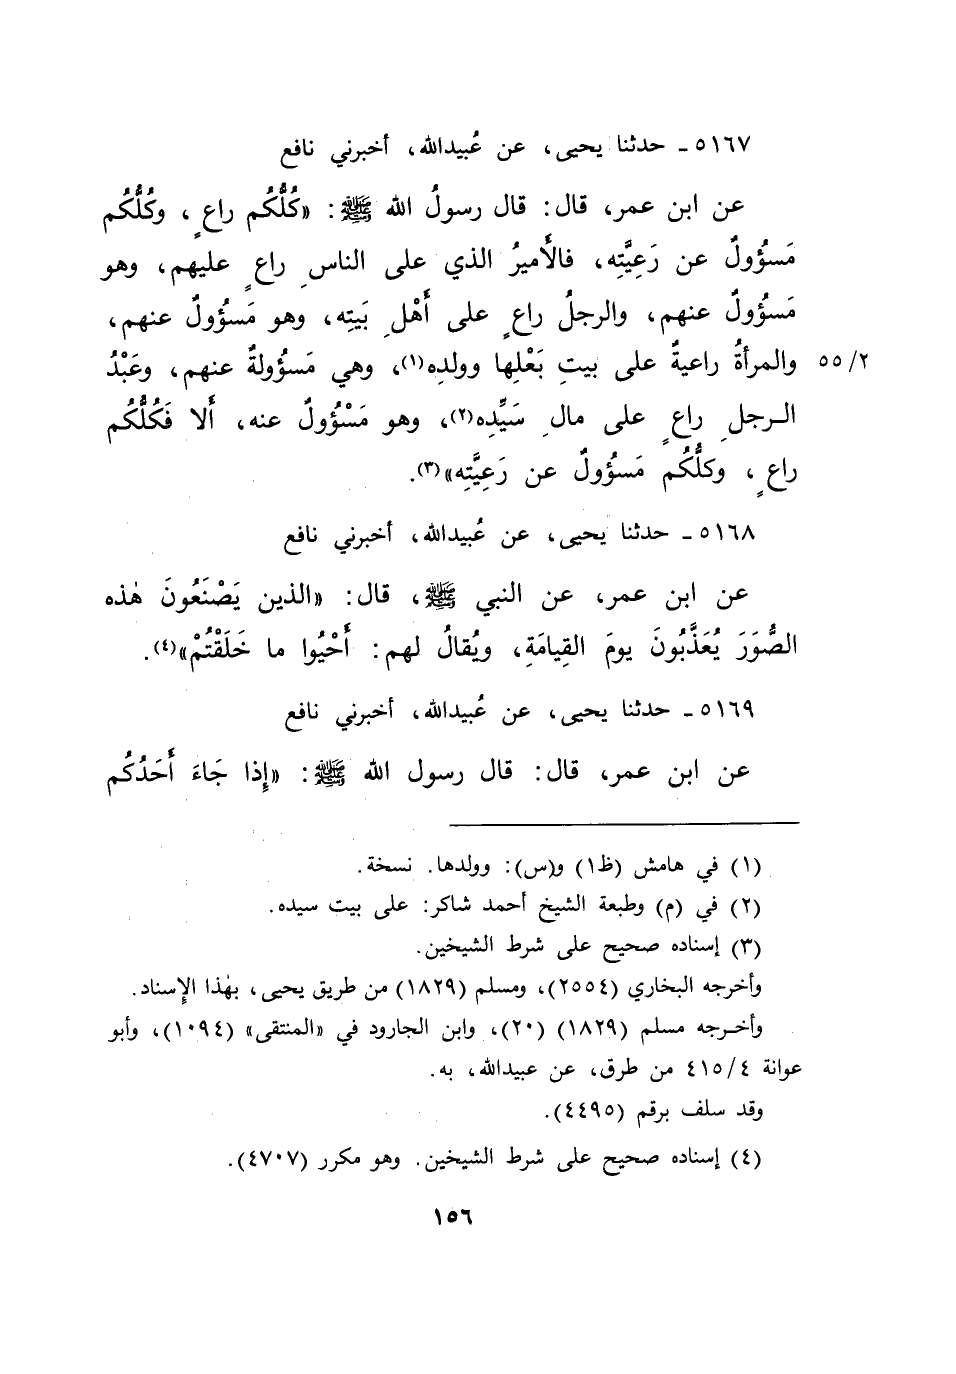 ٥١٦٧ - حدثنا يحيى، عن عُبيدالله، أخبرني نافع
عن ابن عمر، قال: قال رسولُ الله ﷺ: «كُلُّكُم راعٍ، وكُلُّكُم
مَسؤُولٌ عن رَعِيَّتِه، فالأَميرُ الذي على الناسِ راعٍ عليهم، وهو
مَسؤُولٌ عنهم، والرجلُ راعٍ على أَهْلِ بَيتِه، وهو مَسؤُولٌ عنهم،
والمرأةُ راعيةٌ على بيتِ بَعْلِها وولدِه(١)، وهي مَسؤُولةٌ عنهم، وعَبْدُ ٥٥/٢
الرجلِ راعٍ على مالِ سَيِّدِه(٢)، وهو مَسْؤُولٌ عنه، أَلا فَكُلُّكُم
راعٍ، وكلُّكُم مَسؤُولٌ عن رَعِيَّتِه»(٣).
٥١٦٨ - حدثنا يحيى، عن عُبيدالله، أخبرني نافع
عن ابن عمر، عن النبي ﷺ، قال: «الذين يَصْنَعُونَ هٰذه
الصُّوَرَ يُعَذَّبُونَ يومَ القِيامَةِ، ويُقالُ لهم: أَحْيُوا ما خَلَقْتُمْ»(٤).
٥١٦٩ - حدثنا يحيى، عن عُبيدالله، أخبرني نافع
عن ابن عمر، قال: قال رسول الله ﷺ: «إِذا جَاءَ أَحَدُكُم
(١) في هامش (ظ١) و(س): وولدها. نسخة.
(٢) في (م) وطبعة الشيخ أحمد شاكر: على بيت سيده.
(٣) إسناده صحيح على شرط الشيخين.
وأخرجه البخاري (٢٥٥٤)، ومسلم (١٨٢٩) من طريق يحيى، بهٰذا الإسناد.
وأخرجه مسلم (١٨٢٩) (٢٠)، وابن الجارود في «المنتقى» (١٠٩٤)، وأبو
عوانة ٤١٥/٤ من طرق، عن عبيدالله، به.
وقد سلف برقم (٤٤٩٥).
(٤) إسناده صحيح على شرط الشيخين. وهو مكرر (٤٧٠٧).
١٥٦